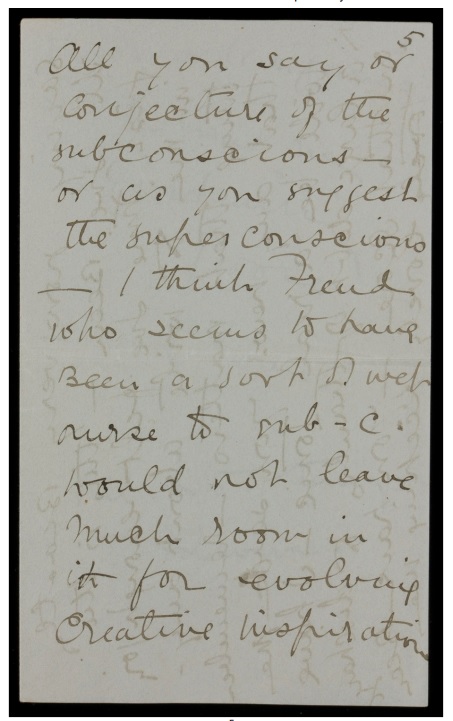 5
All you say or
conjecture of the
subconscious —
or as you suggest
the superconscious
— I think Freud
who seems to have
Been a sort of wet
nurse to sub-c.
would not leave
much room in
it for evolving
Creative inspiration